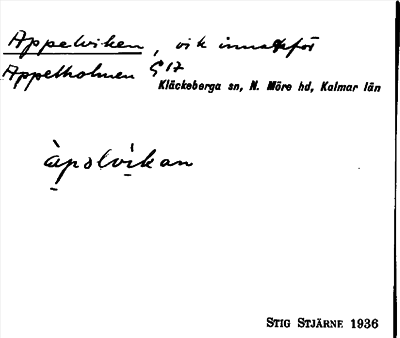 Appelviken, vik innanför
Appelholmen G 17
Kläckeberga sn, N. Möre hd, Kalmar län
àpəlvikan
STIG STJÄRNE 1936